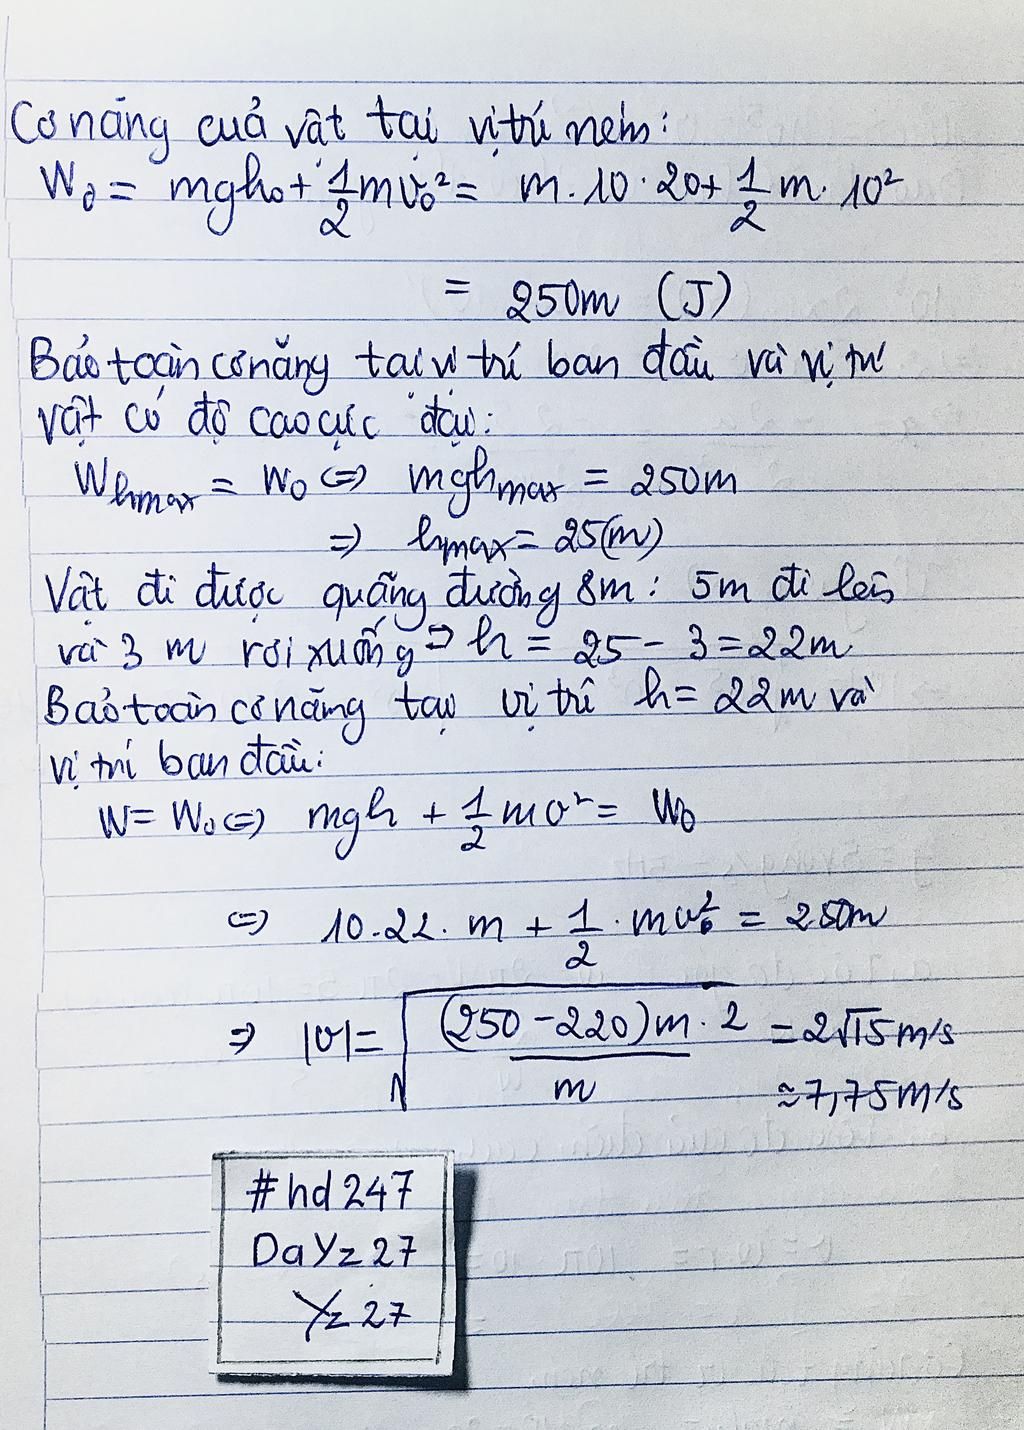 Cơ năng của vật tại vị trí ném:
W₀ = mgh₀ + 1/2 mv₀² = m.10.20 + 1/2 m.10²
= 250m (J)
Bảo toàn cơ năng tại vị trí ban đầu và vị trí
vật có độ cao cực đại:
W hmax = W₀ <=> mgh max = 250m
=> hmax = 25(m)
Vật đi được quãng đường 8m: 5m đi lên
và 3 m rơi xuống => h = 25 - 3 = 22m
Bảo toàn cơ năng tại vị trí h = 22m và
vị trí ban đầu:
W = W₀ <=> mgh + 1/2 mv² = W₀
<=> 10.22.m + 1/2 . mv₀² = 250m
=> |v| = √((250 - 220)m.2 / m) = 2√15 m/s
≈ 7,75 m/s
#hd247
DaYz27
Yz27